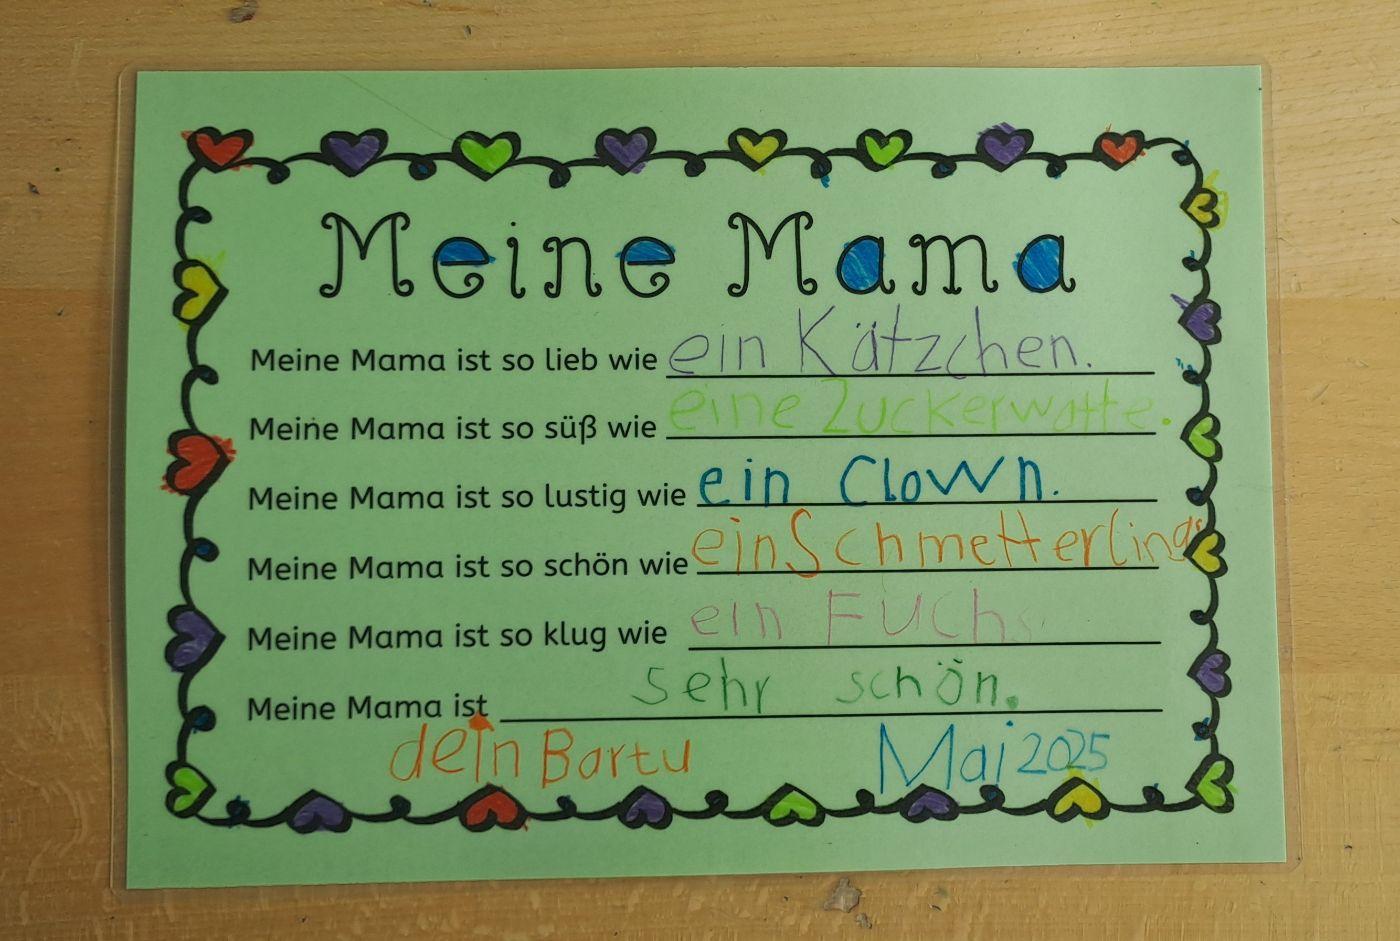 Meine Mama
Meine Mama ist so lieb wie ein Kätzchen.
Meine Mama ist so süß wie eine Zuckerwatte.
Meine Mama ist so lustig wie ein Clown.
Meine Mama ist so schön wie ein Schmetterling.
Meine Mama ist so klug wie ein Fuchs
Meine Mama ist sehr schön.
dein Bartu Mai 2025